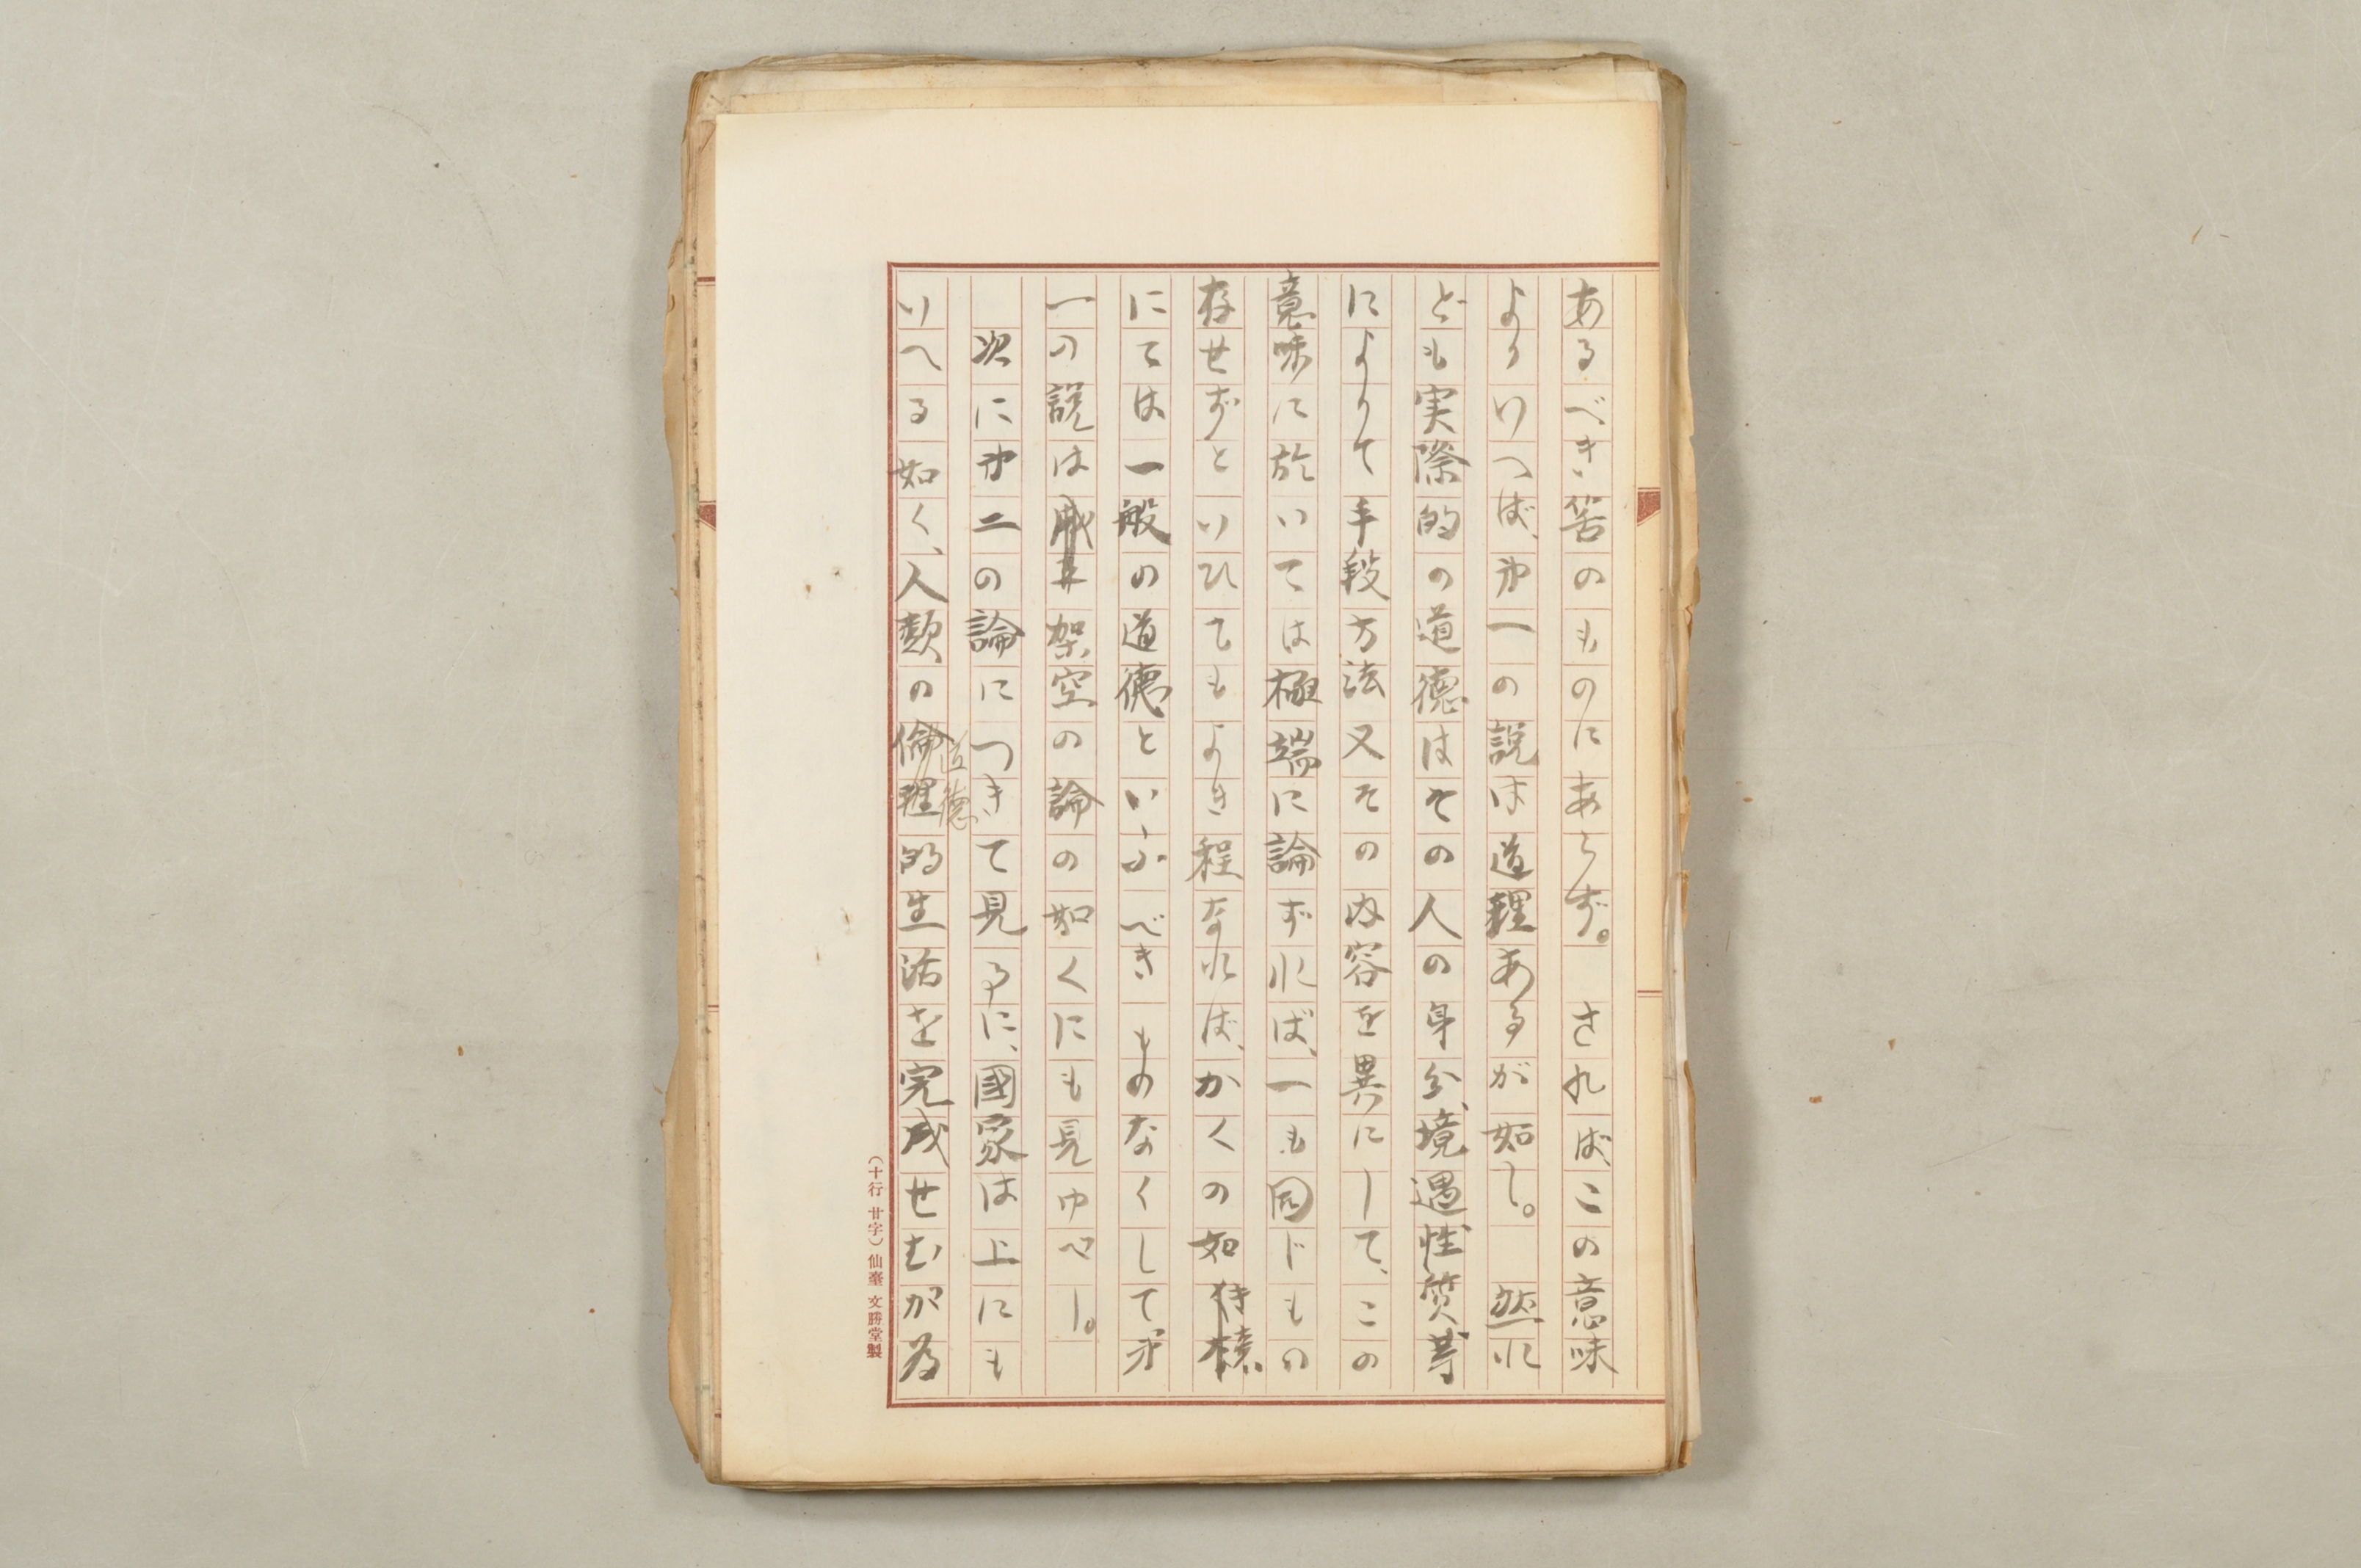 あるべき筈のものにあらず。 されば、この意味
よりいへば、才一の説は道理あるが如し。 然れ
ども実際的の道徳はその人の身分、境遇性質等
によりて手段方法又その内容を異にして、この
意味に於いては極端に論ずれば、一も同じもの
存せずといひてもよき程なれば、かくの如
にては一般の道徳といふべきものなくして才
一の説は架空の論の如くにも見ゆべし。
次に才二の論につきて見るに、國家は上にも
いへる如く、人類の道徳的生活を完成せむが為
(十行 廿字) 仙臺 文勝堂製